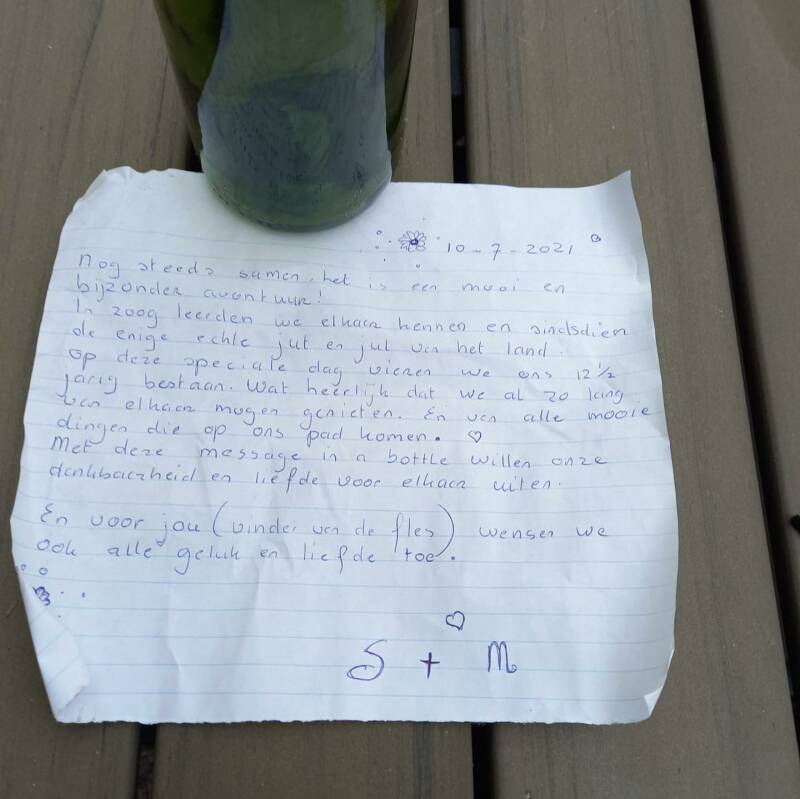 10-7-2021
Nog steeds samen, het is een mooi en
bijzonder avontuur!
In 2009 leerden we elkaar kennen en sindsdien
de enige echte jut en jul van het land.
Op deze speciale dag vieren we ons 12 1/2
jarig bestaan. Wat heerlijk dat we al zo lang
van elkaar mogen genieten. En van alle mooie
dingen die op ons pad komen. ♡
Met deze message in a bottle willen onze
dankbaarheid en liefde voor elkaar uiten.
En voor jou (vinder van de fles) wensen we
ook alle geluk en liefde toe.
S + M